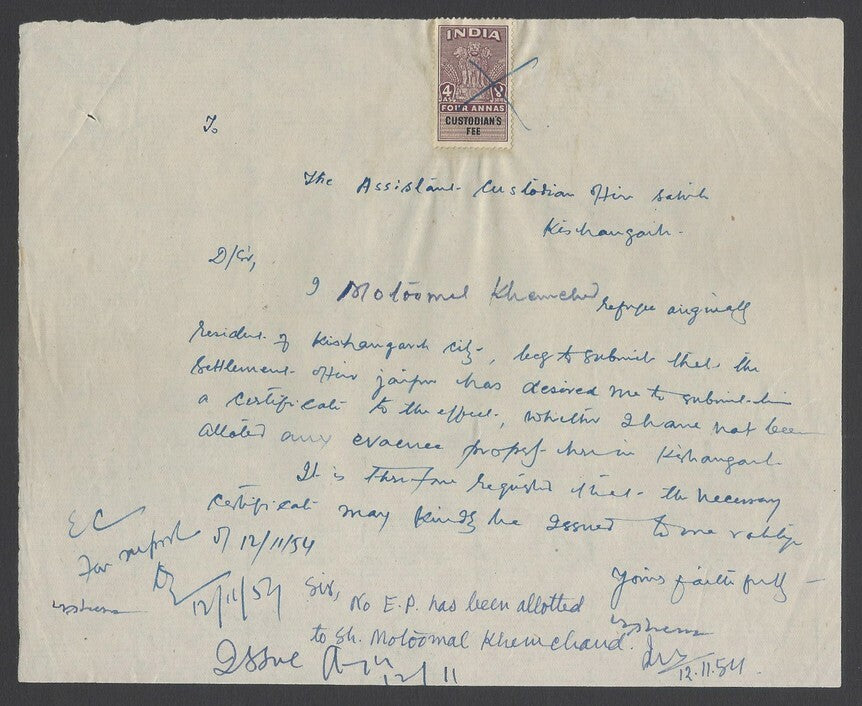 INDIA
4 AS 8
FOUR ANNAS
CUSTODIAN'S
FEE
To
The Assistant Custodian
Kishangarh.
D/Sir,
I Motoomal Khemchand refugee originally
resident of Kishangarh city, beg to submit that the
Settlement Officer Jaipur has desired me to submit him
a certificate to the effect, whether I have not been
alloted any evacuee property here in Kishangarh.
It is therefore requested that the necessary
certificate may kindly be issued to me & oblige
EC
For report
12/11/54
12/11/54
Yours faithfully
Sir, No E.P. has been allotted
to Sh. Motoomal Khemchand.
12.11.54.
Issue
12/11